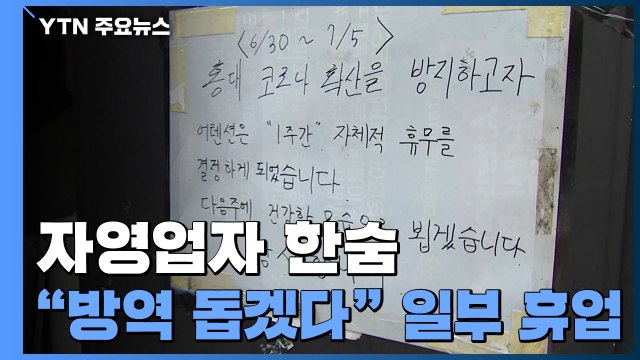 YTN 주요뉴스
<6/30 ~ 7/5>
홍대 코로나 확산을 방지하고자
어텐션은 "1주간" 자체적 휴무를
결정하게 되었습니다
다음주에 건강한 모습으로 뵙겠습니다
자영업자 한숨
“방역 돕겠다” 일부 휴업